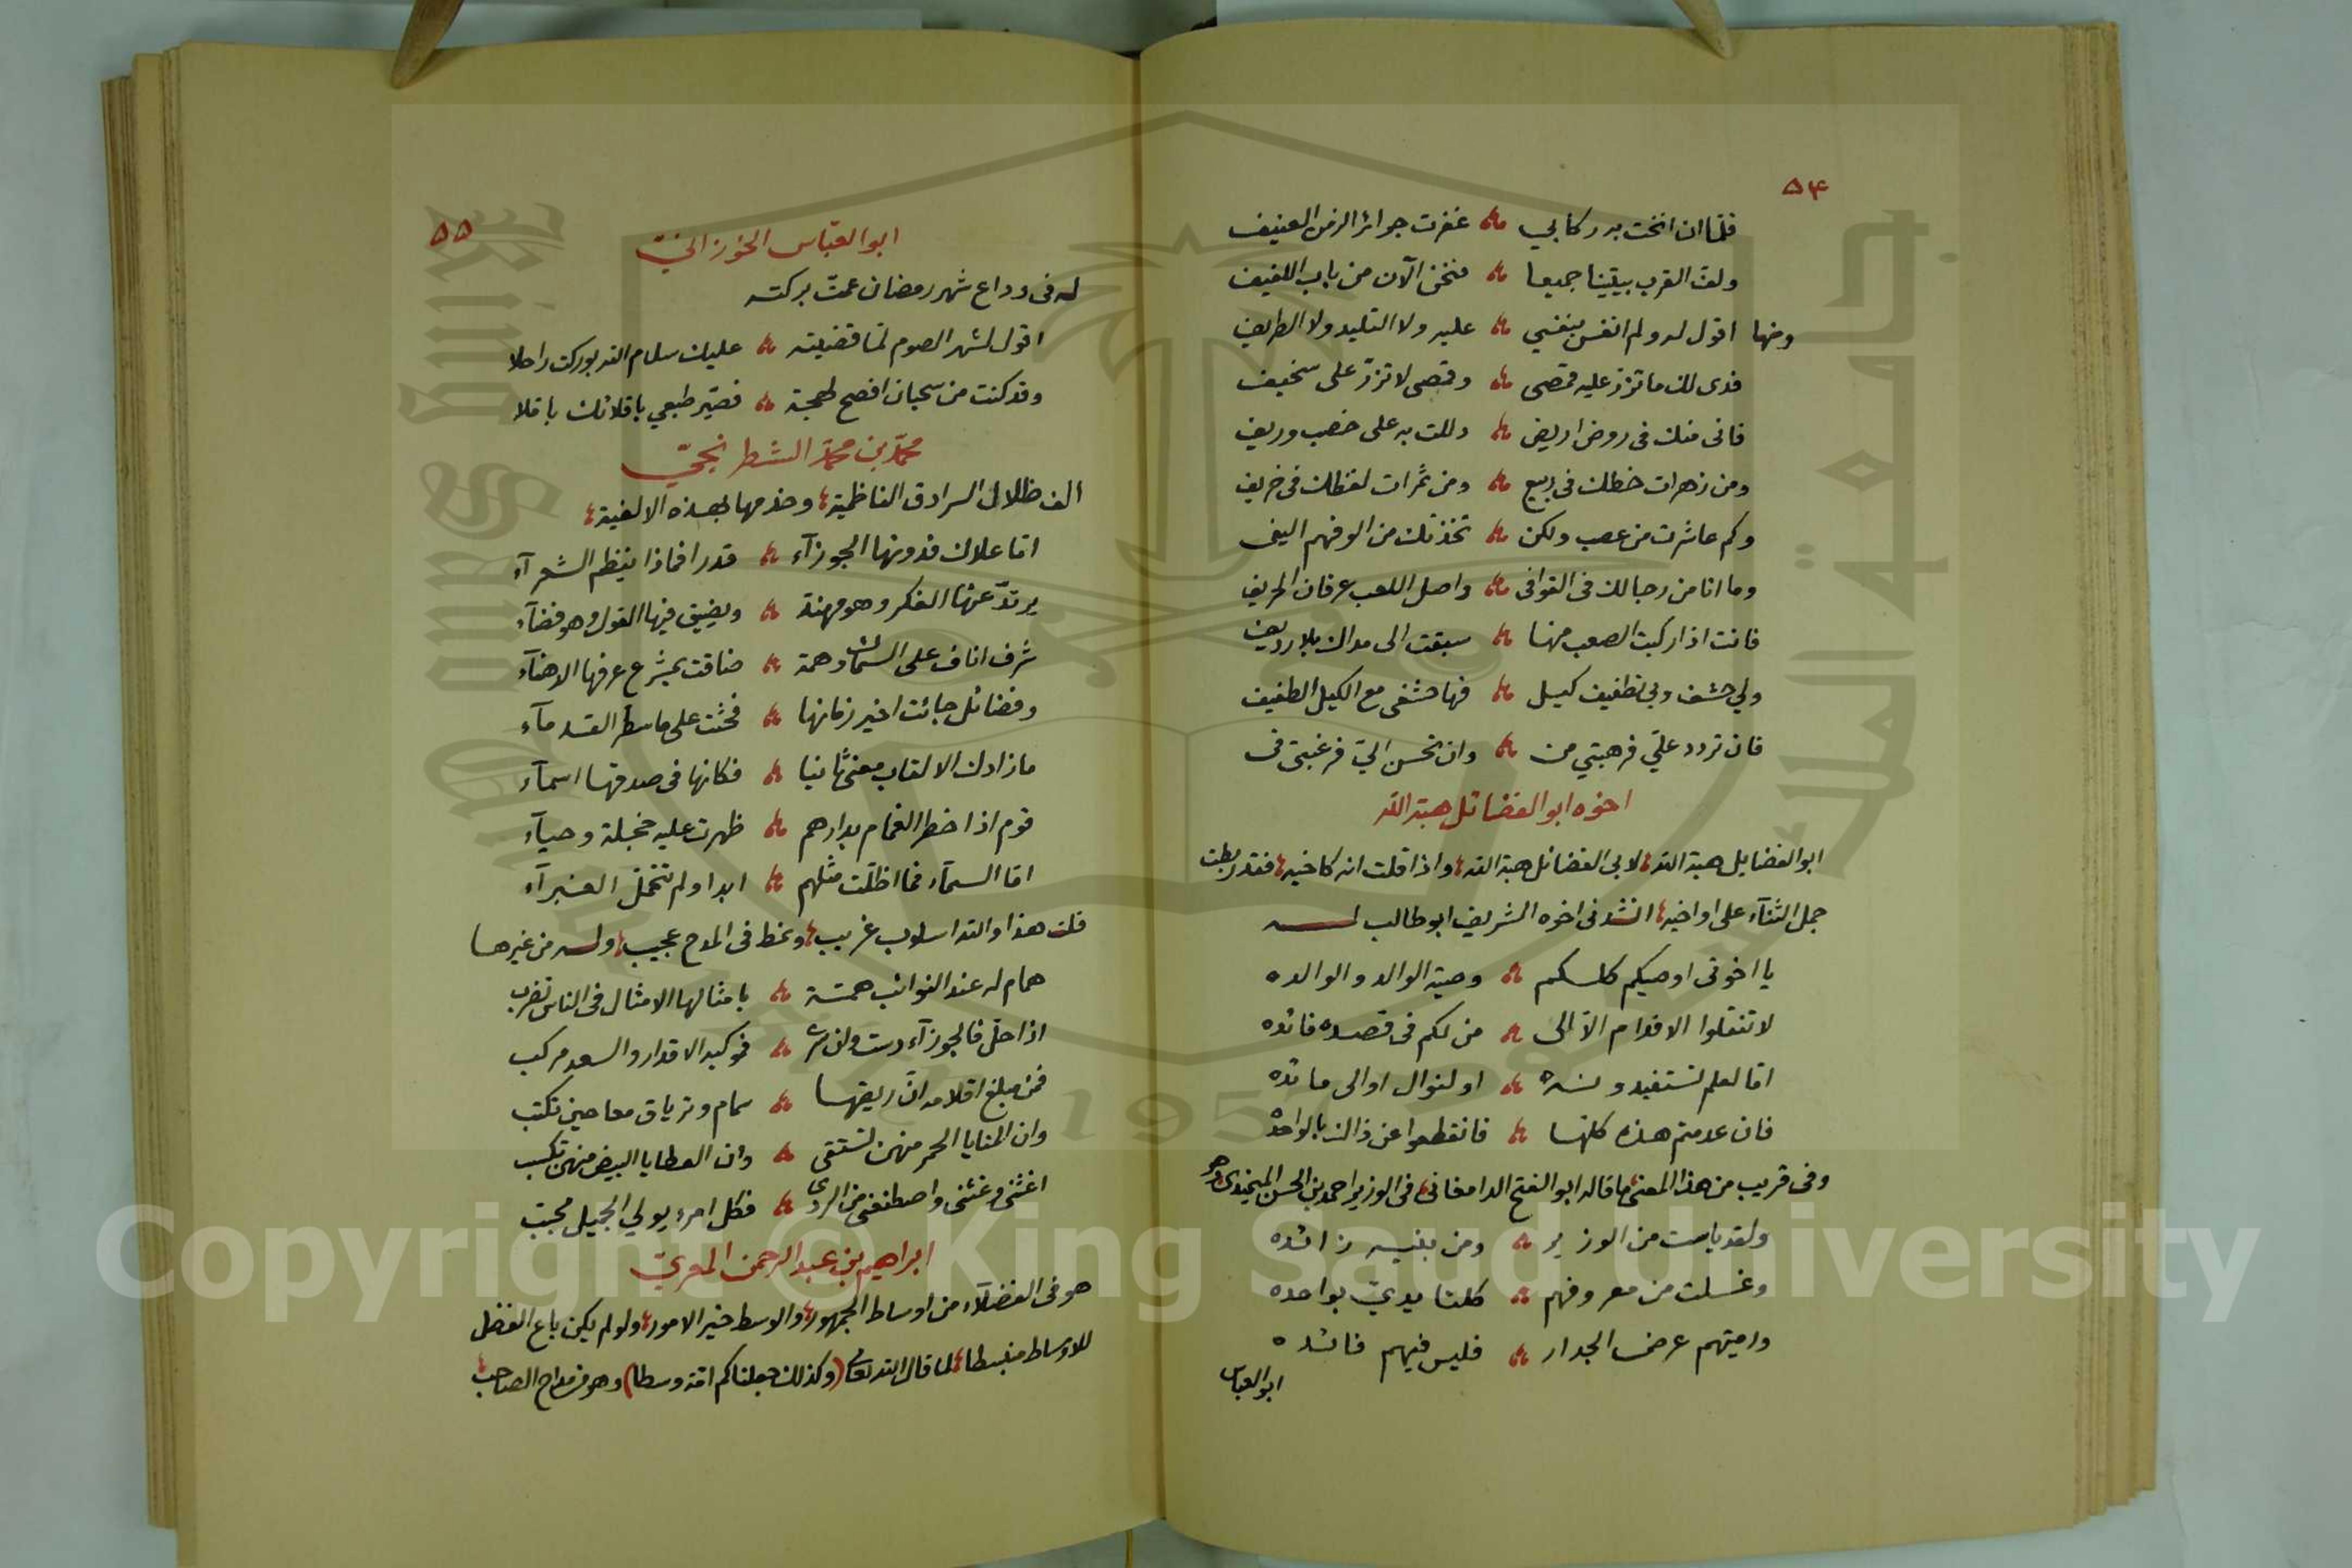 ٥٤
فلما ان انخت به ركابي ؞ غفرت جرائر الزمن العنيف
ولف القرب بيتينا جميعا ؞ فنحن الآن من باب اللفيف
ومنها اقول له ولم انفس بنفسي ؞ عليه ولا التليد ولا الطريف
فدى لك ما تزر عليه قمصى ؞ وقمصى لا تزر على سخيف
فانى منك فى روض اريض ؞ دللت به على خصب وريف
ومن زهرات خطك فى ربيع ؞ ومن ثمرات لفظك فى خريف
وكم عاشرت من عصب ولكن ؞ تخذتك من الوفهم اليفى
وما انا من رجالك فى القوافى ؞ واصل اللعب عرفان الحريف
فانت اذا ركبت الصعب منها ؞ سبقت الى مداك بلا رديف
ولي حشف وبي تطفيف كيل ؞ فها حشفى مع الكيل الطفيف
فان تردد علي فرهبتي من ؞ وان تحسن الي فرغبتى فى
اخوه ابو الفضائل هبة الله
ابو الفضايل هبة الله لابي الفضائل هبة الله واذا قلت انه كاخيه فقد ربطت
جمل الثنآء على اواخيه انشدنى اخوه الشريف ابو طالب لــه
يا اخوتى اوصيكم كلكم ؞ وصية الوالد والوالده
لا تنقلوا الاقدام الا الى ؞ من لكم فى قصده فائده
اما لعلم تستفيدونه ؞ او لنوال او الى مائده
فان عدمتم هذه كلها ؞ فانقطعوا عن ذاك بالواحده
وفى قريب من هذا المعنى ما قاله ابو الفتح الدامغانى فى الوزير احمد بن الحسن الميمندى وهو
ولقد ياست من الوزير ؞ ومن بنيه زائده
وغسلت من معروفهم ؞ كلتا يديّ بواحده
ورميتهم عرض الجدار ؞ فليس فيهم فائده
ابو العباس
٥٥
ابو العبّاس الخوزانيّ
له فى وداع شهر رمضان عمت بركته
اقول لشهر الصوم لمّا قضيته ؞ عليك سلام الله بوركت راحلا
وقد كنت من سحبان افصح لهجة ؞ فصير طبعي باقلانك باقلا
محمّد بن محمّد الشطرنجيّ
الف ظلال السرادق الناظمية وخدمها بهذه الالفية
اما علاك فدونها الجوزآء ؞ قدرا فماذا ينظم الشعرآء
يرتدّ عنها الفكر وهو مهند ؞ ويضيق فيها القول وهو فضآء
شرف اناف على السماك وهمة ؞ ضاقت بمشرع عرفها الدهنآء
وفضائل جائت اخير زمانها ؞ فحثت على ما سطر القدمآء
ما زادك الالقاب معنى ثانيا ؞ فكانها فى صدقها اسمآء
قوم اذا خطر الغمام بدارهم ؞ ظهرت عليه خجلة وحيآء
اما السمآء فما اظلّت مثلهم ؞ ابدا ولم تتحمل الغبرآء
قلت هذا والله اسلوب غريب ونمط فى المدح عجيب وله من غيرها
همام له عند النوائب همّة ؞ بامثالها الامثال فى الناس تضرب
اذا حلّ فالجوزآء دست وان سرى ؞ فموكبه الاقدار والسعد مركب
فمن مبلغ اقلامه ان ريقها ؞ سمام وترياق معا حين تكتب
وان المنايا الحمر منهن تستقى ؞ وان العطايا البيض منهن تكسب
اغثنى وغثنى واصطنعنى من الردى ؞ فكل امرء يولي الجميل محبّب
ابراهيم بن عبد الرحمن المعريّ
هو فى الفضلآء من اوساط الجمهور والوسط خير الامور ولو لم يكن باع الفضل
للاوساط منبسطا لما قال الله تعالى (وكذلك جعلناكم امة وسطا) وهو من مداح الصاحب
Copyright © King Saud University
جامعة الملك سعود
King Saud University
1957